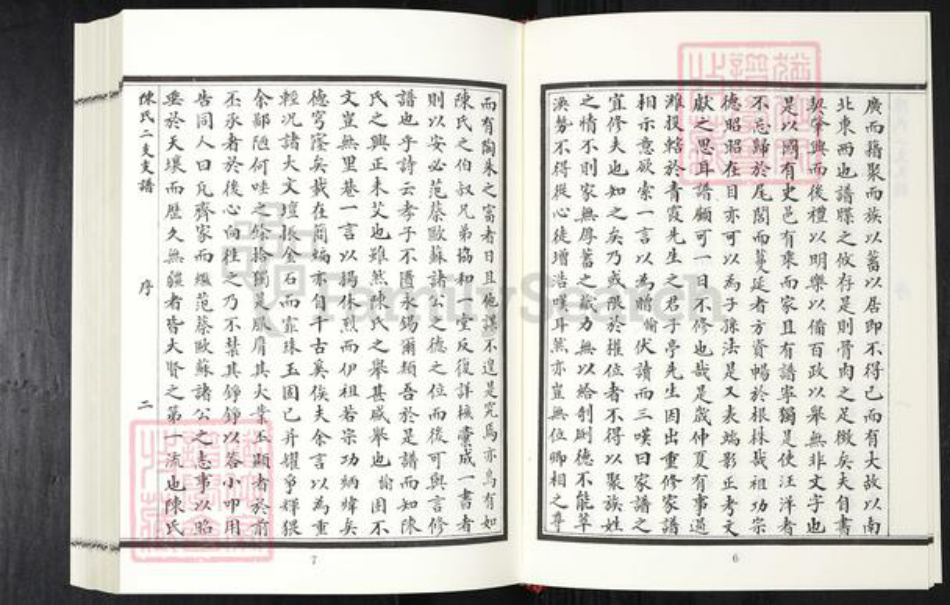 廣而籍聚而族以蓄以居即不得已而有大故以南
北東西也譜牒之攸存是則骨肉之足徵矣夫自書
契肇興而後禮以明樂以備百政以舉無非文字也
是以國有史邑有乘而家且有譜寧獨是使汪洋者
不忘歸於尾閭而蔓延者方資暢於根株哉祖功宗
德昭昭在目亦可以為子孫法是又表端影正考文
獻之思耳譜顧可一日不修也哉是歲仲夏有事過
濰投轄於青霞先生之君子亭先生因出重修家譜
相示意欲索一言以為贈愉伏讀而三嘆曰家譜之
宜修夫也知之矣乃或限於權位者不得以聚族姓
之情不則家無厚蓄之藏力無以給剞劂德不能萃
渙勢不得從心徒增浩嘆耳然亦豈無位卿相之尊
6
而有陶朱之富者日且他謀不遑是究焉亦烏有如
陳氏之伯叔兄弟協和一堂反復詳核彙成一書者
則以安必范蔡歐蘇諸公之德之位而後可與言修
譜也乎詩云孝子不匱永錫爾類吾於是譜而知陳
氏之興正未艾也雖然陳氏之舉甚盛舉也愉固不
文豈無里巷一言以揚休烈而伊祖若宗功炳煒矣
德穹窿矣載在簡端亦自千古奚俟夫余言以為重
輕况諸大文壇振金石而霏珠玉固已并耀爭輝猥
余鄙陋何哇之餘拾獨是服膺其大業丕顯者於前
丕承者於後心向往之乃不禁其錚錚以答小叩用
告同人曰凡齊家而繼范蔡歐蘇諸公之志事以昭
垂於天壤而歷久無疆者皆大賢之第一流也陳氏
陳氏二支支譜
序
二
7
FamilySearch